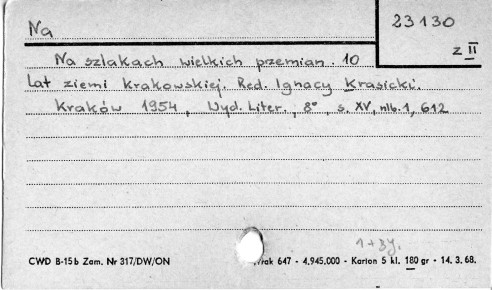 Na
23130
z II
Na szlakach wielkich przemian. 10
lat ziemi krakowskiej. Red. Ignacy Krasicki.
Kraków 1954, Wyd. Liter., 8°, s. XV, nlb. 1, 612
1 + 3 y.
CWD B-15b Zam. Nr 317/DW/ON
647 - 4,945,000 - Karton 5 kl. 180 gr - 14. 3. 68.